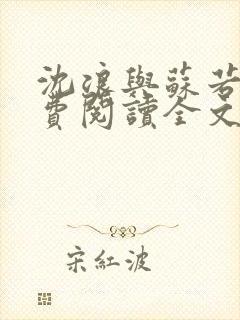 沈浪與蘇若
費閱讀全文
宋紅波